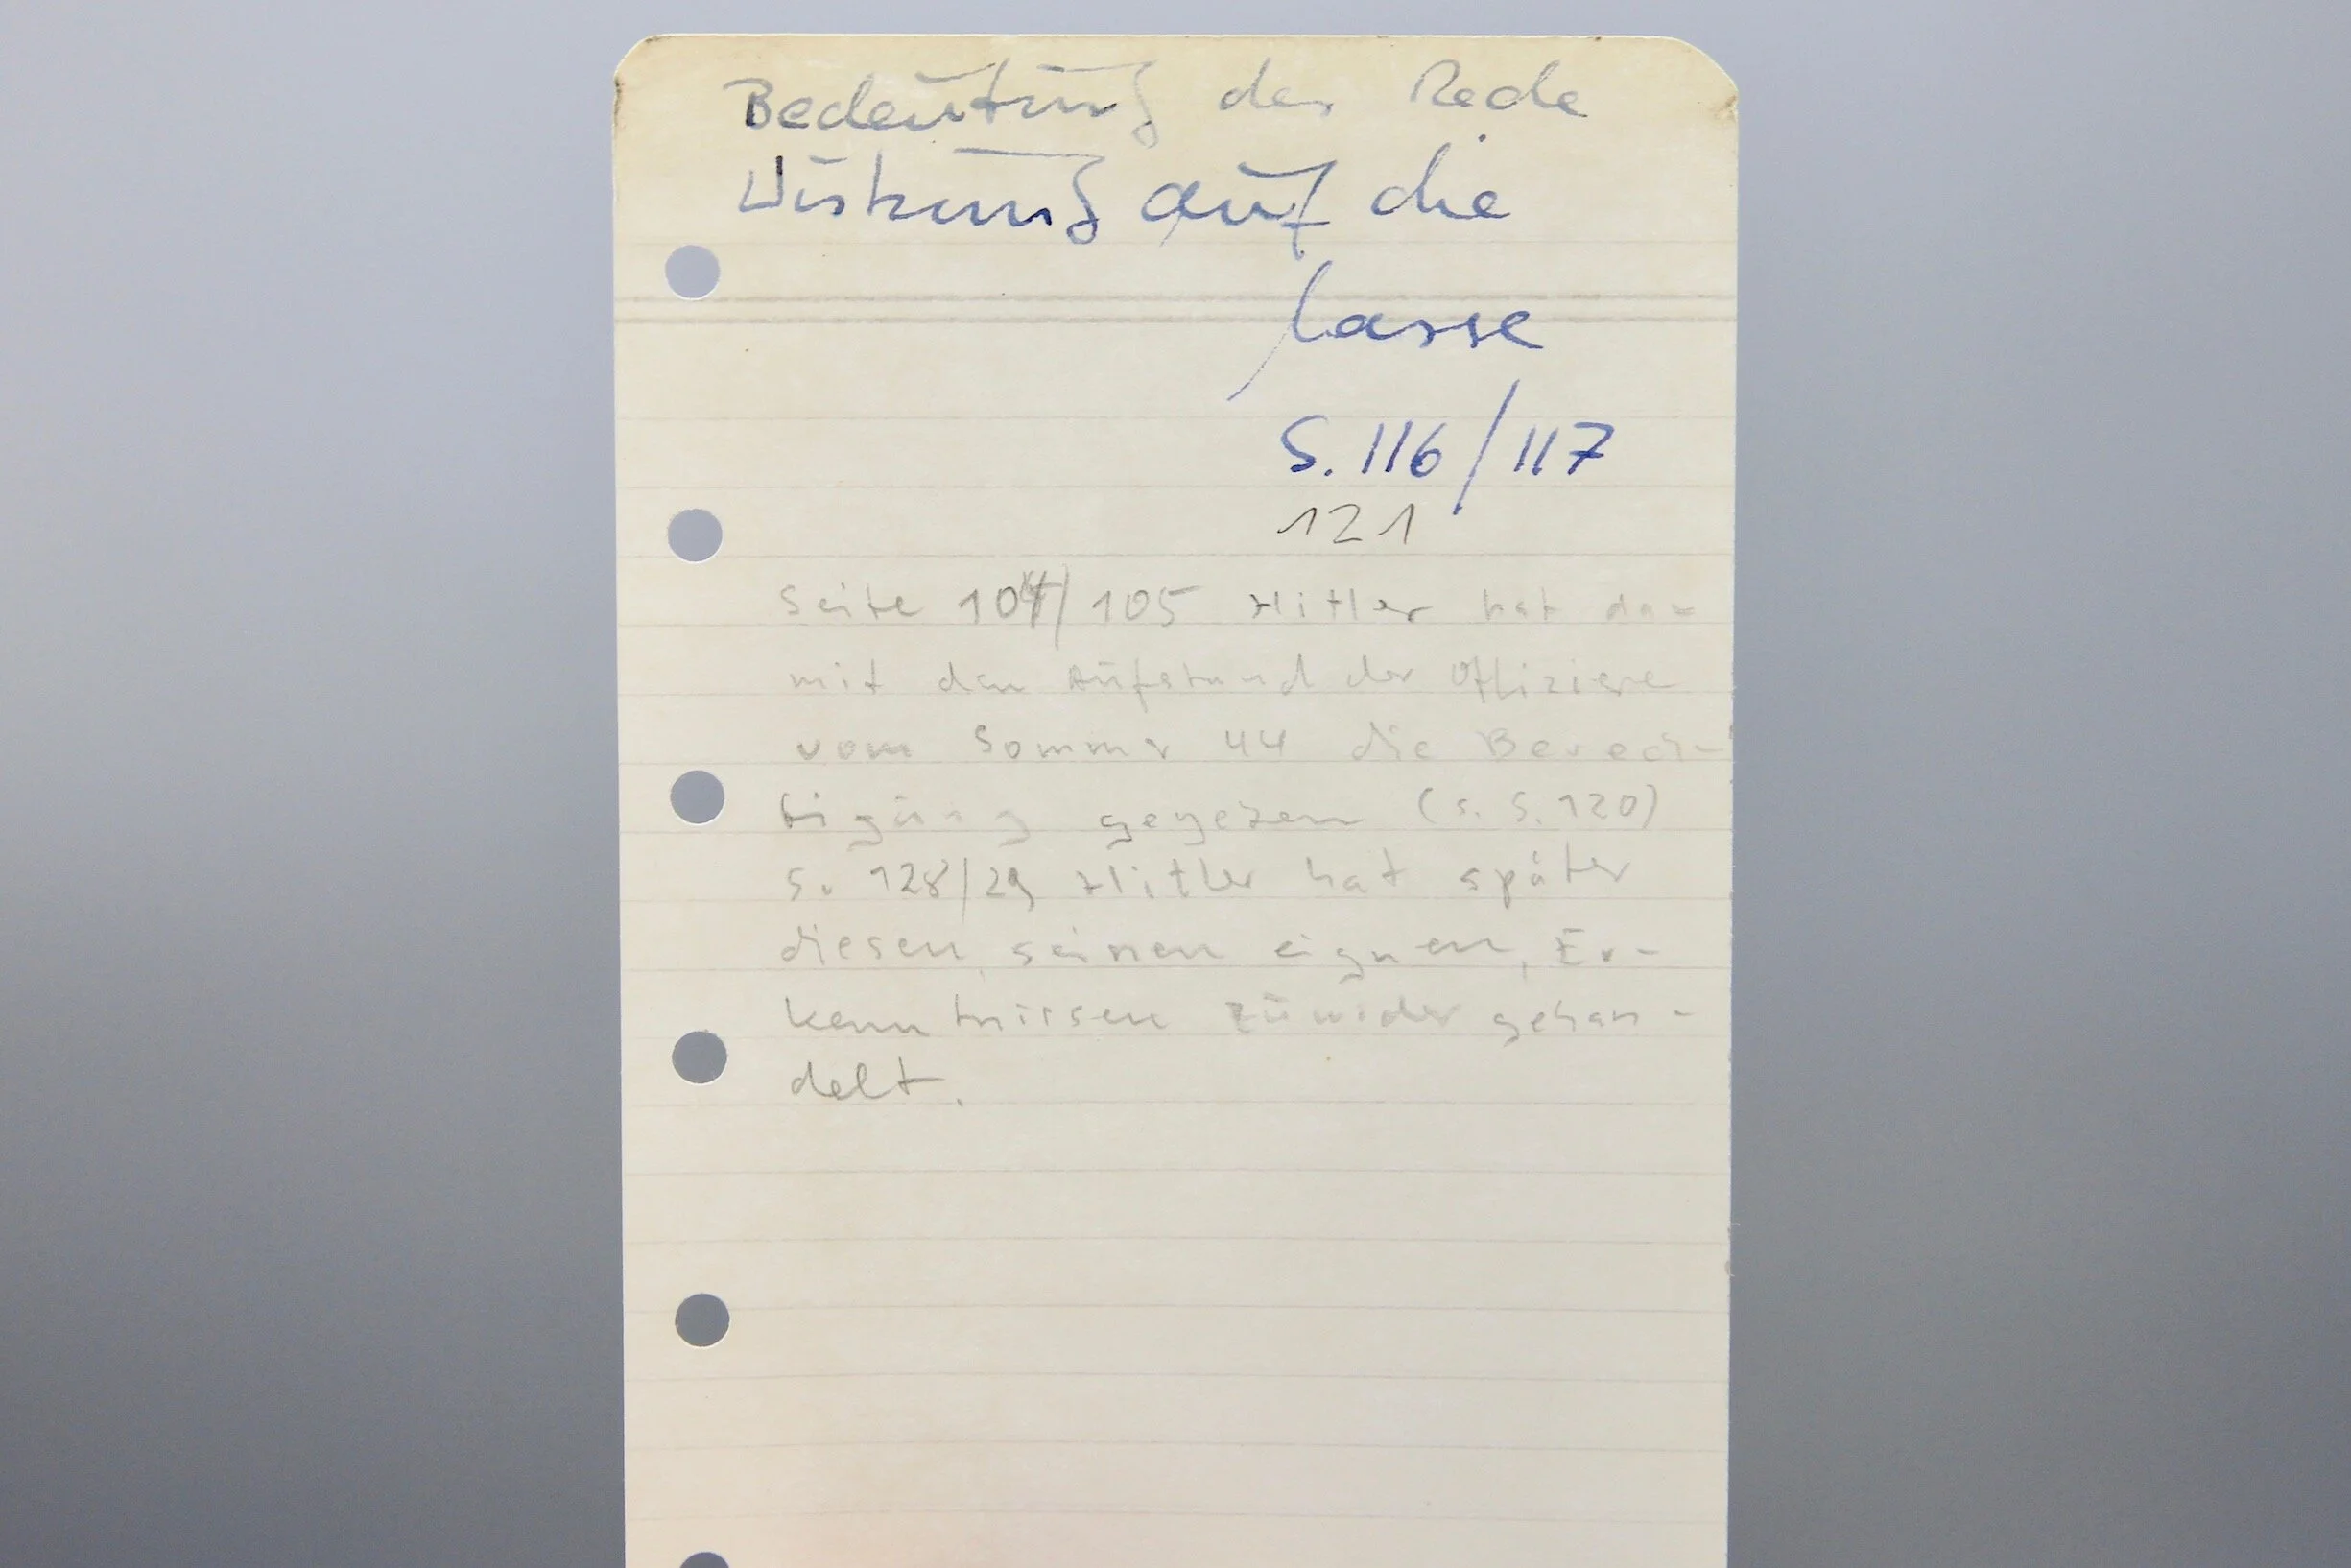 Bedeutung der Rede
Wirkung auf die
Masse
S. 116/117
121
Seite 104/105 Hitler hat da-
mit den Aufstand der Offiziere
vom Sommer 44 die Berech-
tigung gegeben (s. S. 120)
S. 128/29 Hitler hat später
diesen, seinen eignen, Er-
kenntnissen zuwider gehan-
delt.